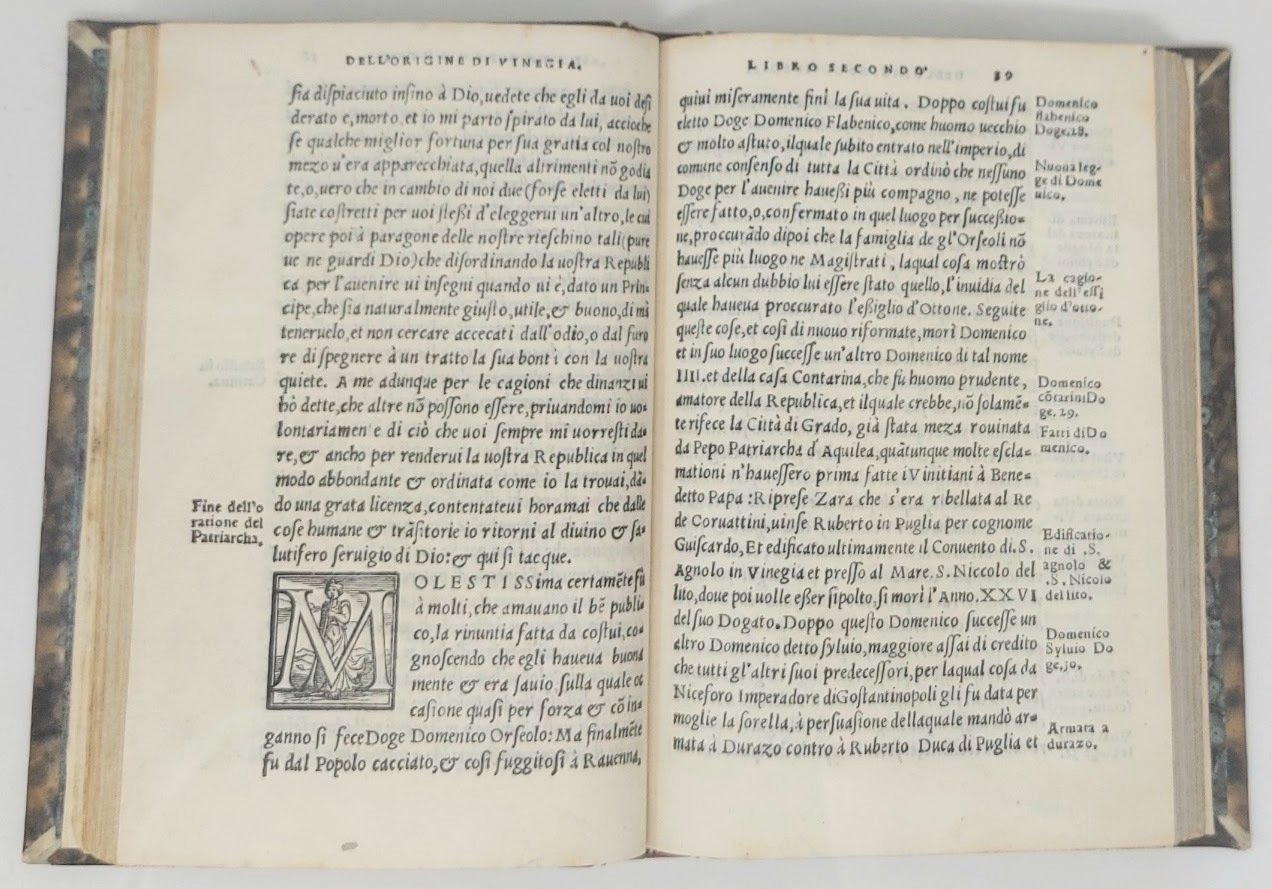 DELL'ORIGINE DI VINEGIA.
sia dispiaciuto insino à Dio, uedete che egli da uoi desi
derato e, morto, et io mi parto spirato da lui, accioche
se qualche miglior fortuna per sua gratia col nostro
mezo u'era apparecchiata, quella altrimenti nõ godia
te, o, uero che in cambio di noi due (forse eletti da lui)
siate costretti per uoi stessi d'eleggerui un'altro, le cui
opere poi à paragone delle nostre rieschino tali (pure
ue ne guardi Dio) che disordinando la uostra Republi
ca per l'auenire ui insegni quando ui è, dato un Prin-
cipe, che sia naturalmente giusto, utile, & buono, di mã
teneruelo, et non cercare accecati dall'odio, o dal furo
re di spegnere à un tratto la sua bontà con la uostra
quiete. A me adunque per le cagioni che dinanzi ui
hò dette, che altre nõ possono essere, priuandomi io uo-
lontariamen e di ciò che uoi sempre mi uorresti da-
re, & ancho per renderui la uostra Republica in quel
modo abbondante & ordinata come io la trouai, dã-
do una grata licenza, contentateui horamai che dalle
cose humane & trãsitorie io ritorni al diuino & sa-
lutifero seruigio di Dio: & qui si tacque.
Fine dell'o
ratione del
Patriarcha.
MOLESTISSima certamẽte fù
à molti, che amauano il bẽ publi-
co, la rinuntia fatta da costui, co-
gnoscendo che egli haueua buona
mente & era sauio, sulla quale oc
casione quasi per forza & cõ in-
ganno si fece Doge Domenico Orseolo: Ma finalmẽte
fu dal Popolo cacciato, & così fuggitosi à Rauenna,
LIBRO SECONDO
39
quiui miseramente finì la sua uita. Doppo costui fu
eletto Doge Domenico Flabenico, come huomo uecchio
& molto astuto, ilquale subito entrato nell'imperio, di
comune consenso di tutta la Città ordinò che nessuno
Doge per l'auenire hauessi più compagno, ne potesse
essere fatto, o, confermato in quel luogo per successio-
ne, proccurãdo dipoi che la famiglia de gl'Orseoli nõ
hauesse più luogo ne Magistrati, laqual cosa mostrò
senza alcun dubbio lui essere stato quello, l'inuidia del
quale haueua proccurato l'essiglio d'Ottone. Seguite
queste cose, et così di nuouo riformate, morì Domenico
et in suo luogo successe un'altro Domenico di tal nome
IIII. et della casa Contarina, che fù huomo prudente,
amatore della Republica, et ilquale crebbe, nõ solamẽ-
te rifece la Città di Grado, già stata meza rouinata
da Pepo Patriarcha d'Aquilea, quãtunque molte escla-
mationi n'hauessero prima fatte i Vinitiani à Bene-
detto Papa: Riprese Zara che s'era ribellata al Re
de Coruattini, uinse Ruberto in Puglia per cognome
Guiscardo, Et edificato ultimamente il Conuento di. S.
Agnolo in Vinegia et presso al Mare. S. Niccolo del
lito, doue poi uolle esser sipolto, si morì l'Anno. XXVI
del suo Dogato. Doppo questo Domenico successe un
altro Domenico detto syluio, maggiore assai di credito
che tutti gl'altri suoi predecessori, per laqual cosa da
Niceforo Imperadore di Gostantinopoli gli fu data per
moglie la sorella, à persuasione della quale mandò ar-
mata à Durazo contro à Ruberto Duca di Puglia et
Domenico
flabenico
Doge. 28.
Nuoua leg-
ge di Dome
nico.
La cagio-
ne dell'essi
glio d'otto-
ne.
Domenico
cõtarini Do
ge. 29.
Fatti di Do
menico.
Edificatio-
ne di .S.
agnolo &
.S. Nicolo
del lito.
Domenico
Syluio Do
ge. 30.
Armata a
durazo.